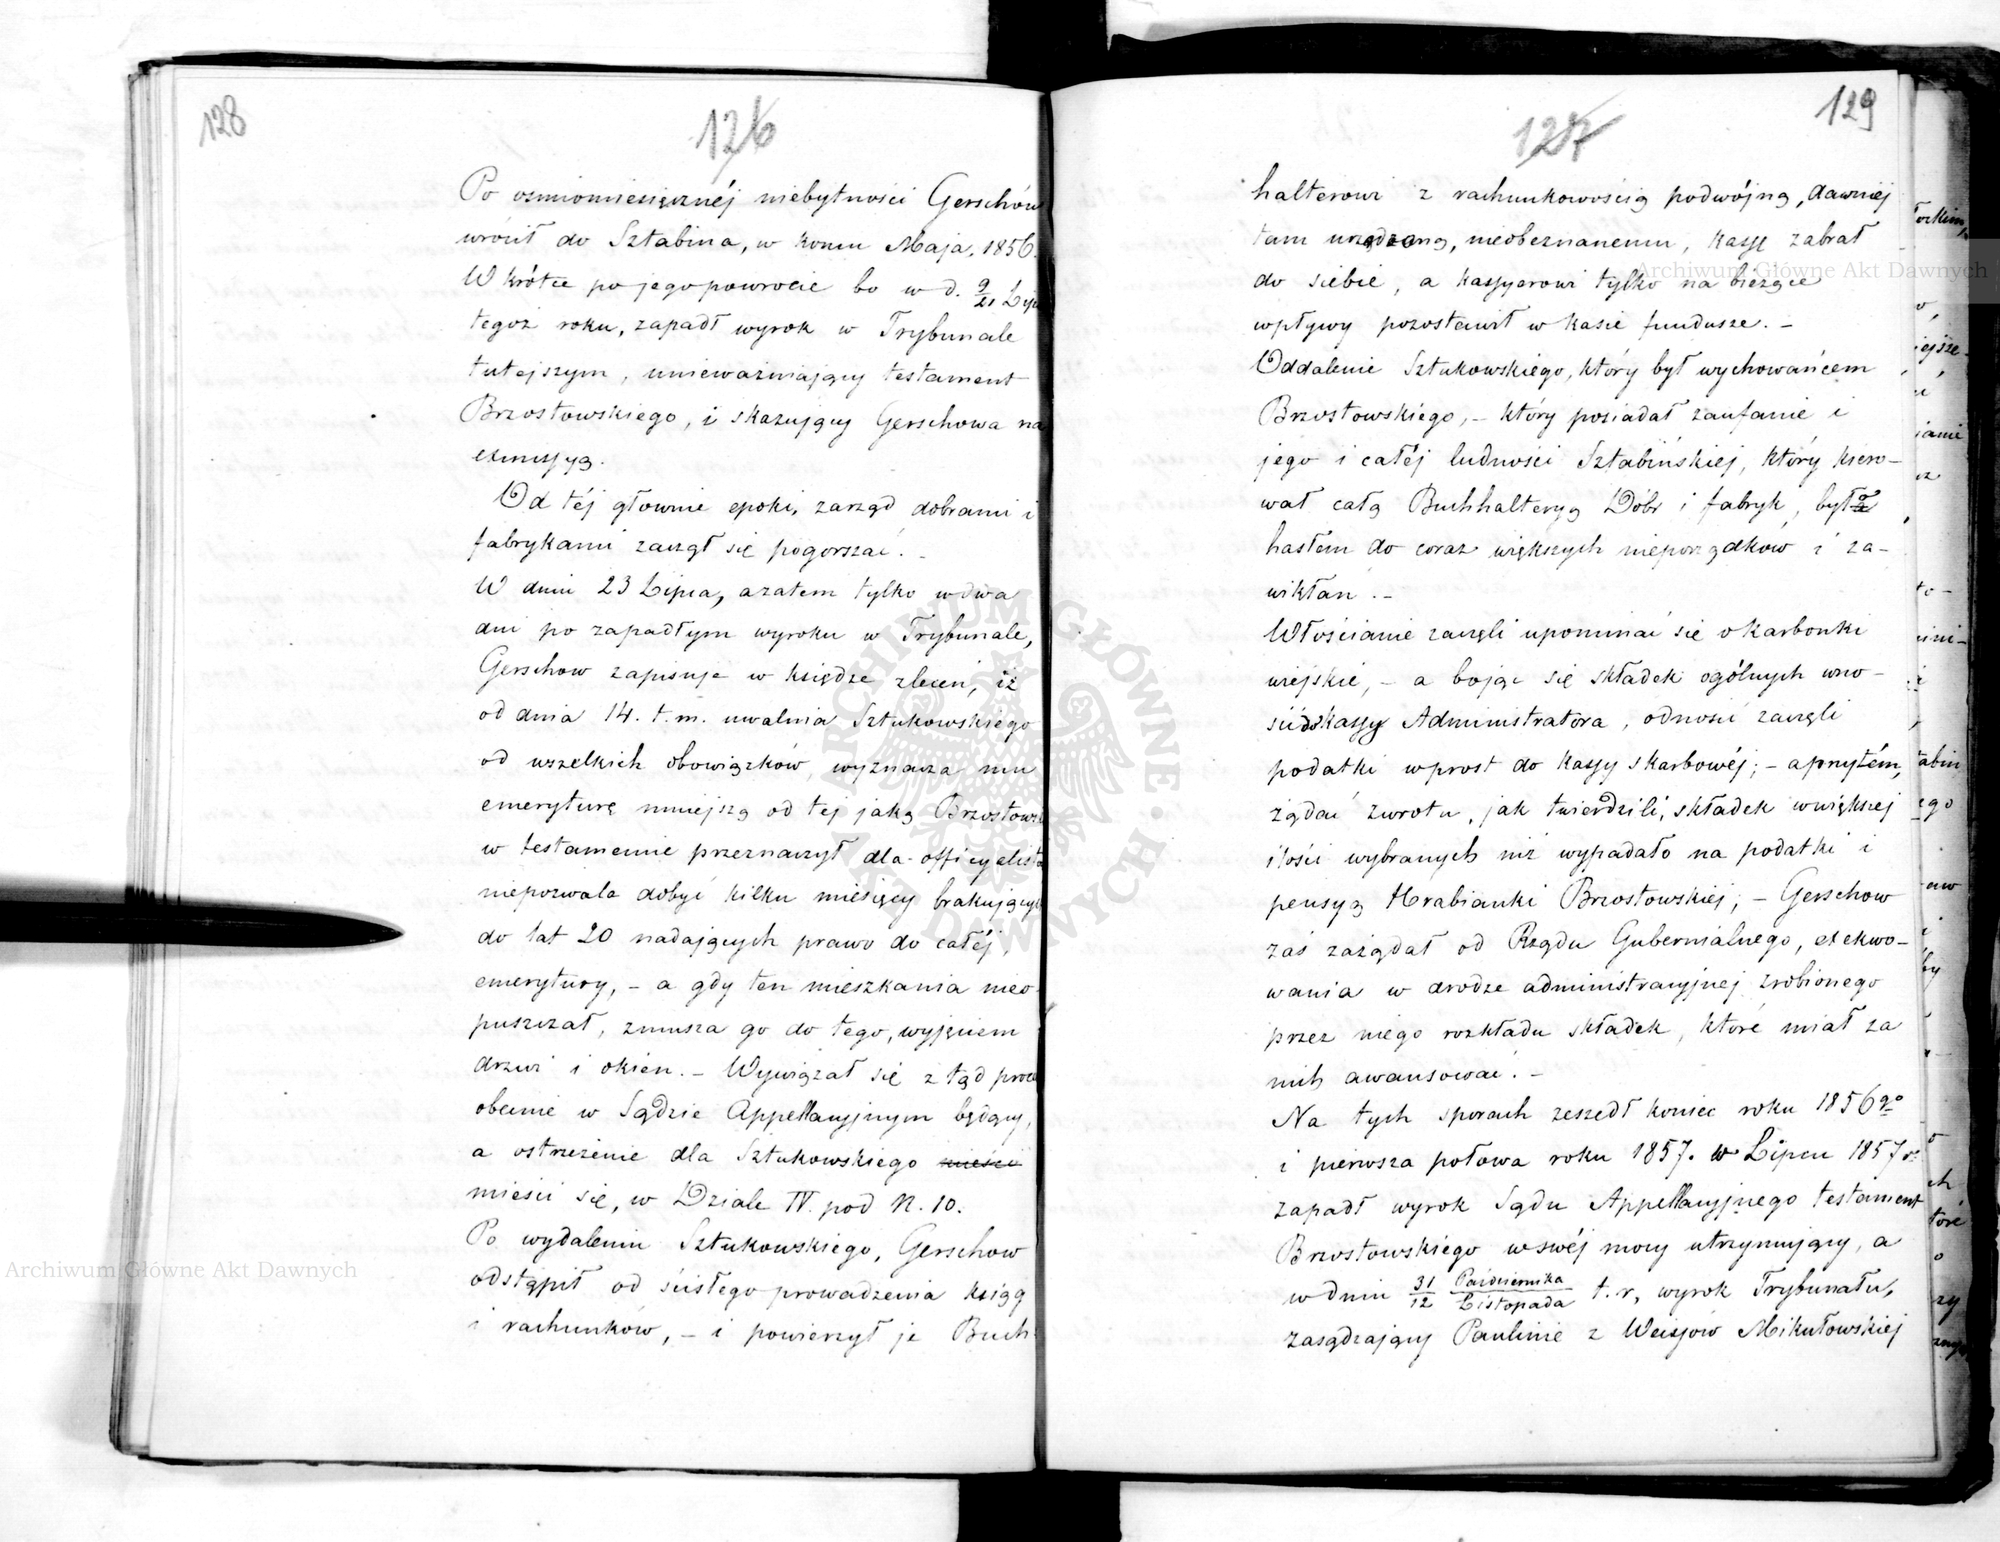 128
126
Po osmiomiesięcznéj niebytności Gerschów
wrócił do Sztabina, w końcu Maja, 1856.
W krótce po jego powrocie bo w d. 9/21 Lip
tegoż roku, zapadł wyrok w Trybunale
tutejszym, unieważniający testament
Brzostowskiego, i skazujący Gerschowa na
exmissyą.
Od téj głownie epoki, zarząd dobrami i
fabrykami zaczął się pogorszać. –
W dniu 23 Lipca, a zatem tylko w dwa
dni po zapadłym wyroku w Trybunale,
Gerschow zapisuje w księdze zleceń, iż
od dnia 14. t. m. uwalnia Sztukowskiego
od wszelkich obowiązków, wyznacza mu
emeryturę mniejszą od tej jaką Brzostows
w testamencie przeznaczył dla officyalistó
niepozwala dobyć kilku miesięcy brakujących
do lat 20 nadających prawo do całéj,
emerytury, – a gdy ten mieszkania nieo
puszczał, zmusza go do tego, wyjęciem
drzwi i okien. – Wywiązał się ztąd proce
obecnie w Sądzie Appellacyjnym będący,
a ostrzeżenie dla Sztukowskiego mieści
mieści się, w Dziale IV. pod N. 10.
Po wydaleniu Sztukowskiego, Gerschow
odstąpił od ścisłego prowadzenia ksiąg
i rachunków, – i powierzył je Buch-
129
127
halterowi z rachunkowością podwójną, dawniej
tam urządzoną, nieobeznanemu, kassę zabrał
do siebie, a kassyerowi tylko na bieżące
wpływy pozostawił w kasie fundusze. –
Oddalenie Sztukowskiego, który był wychowańcem
Brzostowskiego, – który posiadał zaufanie i
jego i całéj ludności Sztabińskiej, który kiero-
wał całą Buchhalteryą Dóbr i fabryk, było
hasłem do coraz większych nieporządków i za-
wikłan. –
Włościanie zaczęli upominać się o karbonki
wiejskie, – a bojąc się składek ogólnych wno-
sić do kassy Administratora, odnosić zaczęli
podatki wprost do kassy skarbowéj; – a przytém,
żądać zwrotu, jak twierdzili, składek w większej
ilości wybranych niż wypadało na podatki i
pensyą Hrabianki Brzostowskiej; – Gerschow
zaś zażądał od Rządu Gubernialnego, exekwo-
wania w drodze administracyjnej zrobionego
przez niego rozkładu składek, które miał za
nich awansować. –
Na tych sporach zeszedł koniec roku 1856go
i pierwsza połowa roku 1857. w Lipcu 1857 r.
zapadł wyrok Sądu Appellacyjnego testament
Brzostowskiego w swéj mocy utrzymujący, a
w dniu 31/12 Października/Listopada t. r, wyrok Trybunału,
zasądzający Paulinie z Weissów Mikułowskiej
Archiwum Główne Akt Dawnych
Archiwum Główne Akt Dawnych
ARCHIWUM GŁÓWNE AKT DAWNYCH